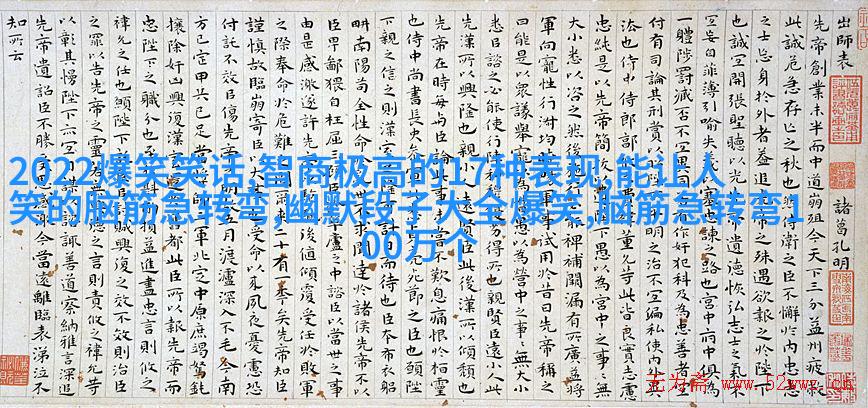 2022爆笑笑话,智商极高的17种表现,能让人
笑的脑筋急转弯,幽默段子大全爆笑,脑筋急转弯1
00万个
出師表
諸葛孔明
先帝創業未半而中道崩殂今天下三分益州疲敝
此誠危急存亡之秋也 侍衛之臣不懈於內忠志
之士忘身於外者蓋追先帝之殊遇欲報之於陛下
也誠宜開張聖聽以光 遺德恢弘志士之氣不
宜妄自菲薄引喻失 塞忠諫之路也宮中府中俱為
一體陟罰臧否不宜異 作奸犯科及為忠善者宜
付有司論其刑賞以 明之治不宜偏私使內外異
法也侍中侍郎郭 董允等此皆良實志慮
忠純是以先帝簡拔 下愚以為宮中之事事無
大小悉以咨之然後 裨補闕漏有所廣益將
軍向寵性行淑均 軍事試用於昔日先帝稱之
曰能是以眾議舉寵 愚以為營中之事事無大小
悉以諮之必能使行 得所也親賢臣遠小人此
先漢所以興隆也親小人 賢臣此後漢所以傾頹也
先帝在時每與臣論 未嘗不歎息痛恨於桓靈
也侍中尚書長史 死節之臣也願陛
下親之信之則漢室 計日而待也臣本布衣躬
耕南陽苟全性命 求聞達於諸侯先帝不以
臣卑鄙猥自枉屈三 廬之中諮臣以當世之事
由是感激遂許先 後值傾覆受任於敗軍
之際奉命於危難 二十有一年矣先帝知臣
謹慎故臨崩寄臣 受命以來夙夜憂慮恐
付託不效 傷先帝 五月渡瀘深入不毛今南
方已定甲兵已足當 軍北定中原庶竭駑鈍
攘除奸凶興復漢 都此臣所以報先帝而
忠陛下之職分也至 損益進盡忠言則攸之
禕允之任也願陛下 賊興復之效不效則治臣
之罪以告先帝之靈 之言則責攸之禕允等
以彰其慢陛下亦宜 諮諏善道察納雅言深追
先帝遺詔臣不勝 當遠離臨表涕泣不
知所云
无为斋 www.52wwz.cn